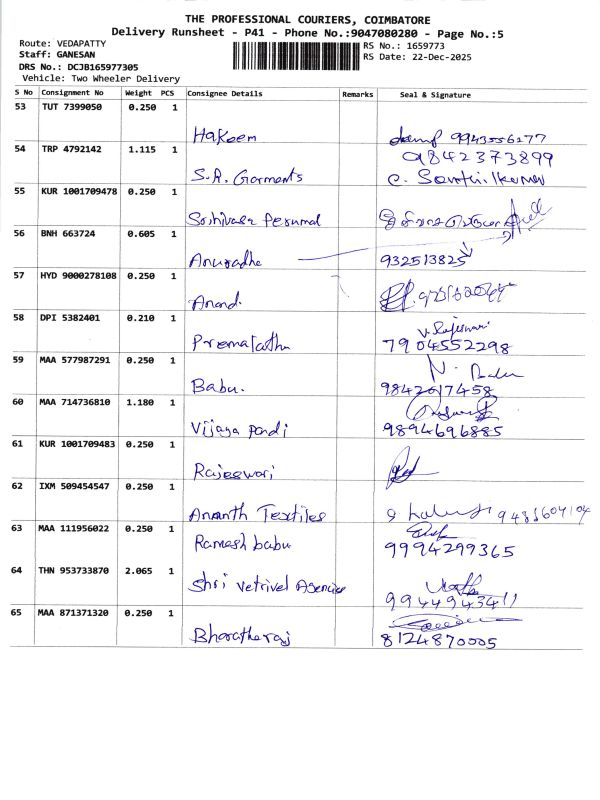 THE PROFESSIONAL COURIERS, COIMBATORE
Delivery Runsheet - P41 - Phone No.:9047080280 - Page No.:5
Route: VEDAPATTY
RS No.: 1659773
Staff: GANESAN
RS Date: 22-Dec-2025
DRS No.: DCJB165977305
Vehicle: Two Wheeler Delivery
S No Consignment No Weight PCS Consignee Details Remarks Seal & Signature
53 TUT 7399050 0.250 1
Hakeem 9943556277
54 TRP 4792142 1.115 1 9842373899
S.A. Garments C. Senthilkumar
55 KUR 1001709478 0.250 1
Srinivasa Perumal
56 BNH 663724 0.605 1
Anuradha 932513825
57 HYD 9000278108 0.250 1
Anand
58 DPI 5382401 0.210 1 V. Rajeswari
Prematathu 7904552298
59 MAA 577987291 0.250 1 N. Babu
Babu. 9842617458
60 MAA 714736810 1.180 1
Vijaya pandi 9894696885
61 KUR 1001709483 0.250 1
Rajeswari
62 IXM 509454547 0.250 1
Ananth Textiles
63 MAA 111956022 0.250 1
Ramesh babu 9994299365
64 THN 953733870 2.065 1
Shri vetrivel Agencies 9944943411
65 MAA 871371320 0.250 1
Bharatheraj 8124870005